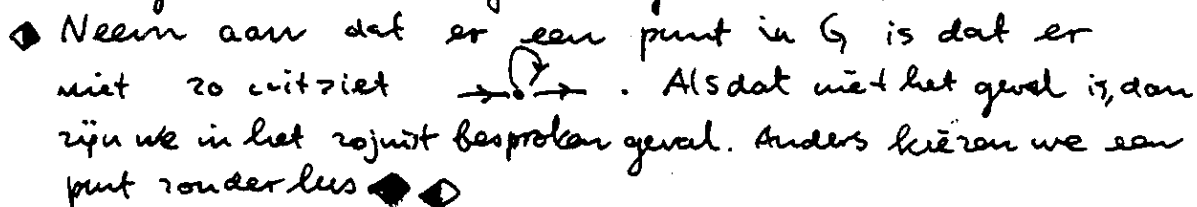 Neem aan dat er een punt in G is dat er
niet zo uitziet . Als dat niet het geval is, dan
zijn we in het zojuist besproken geval. Anders kiezen we een
punt zonder lus